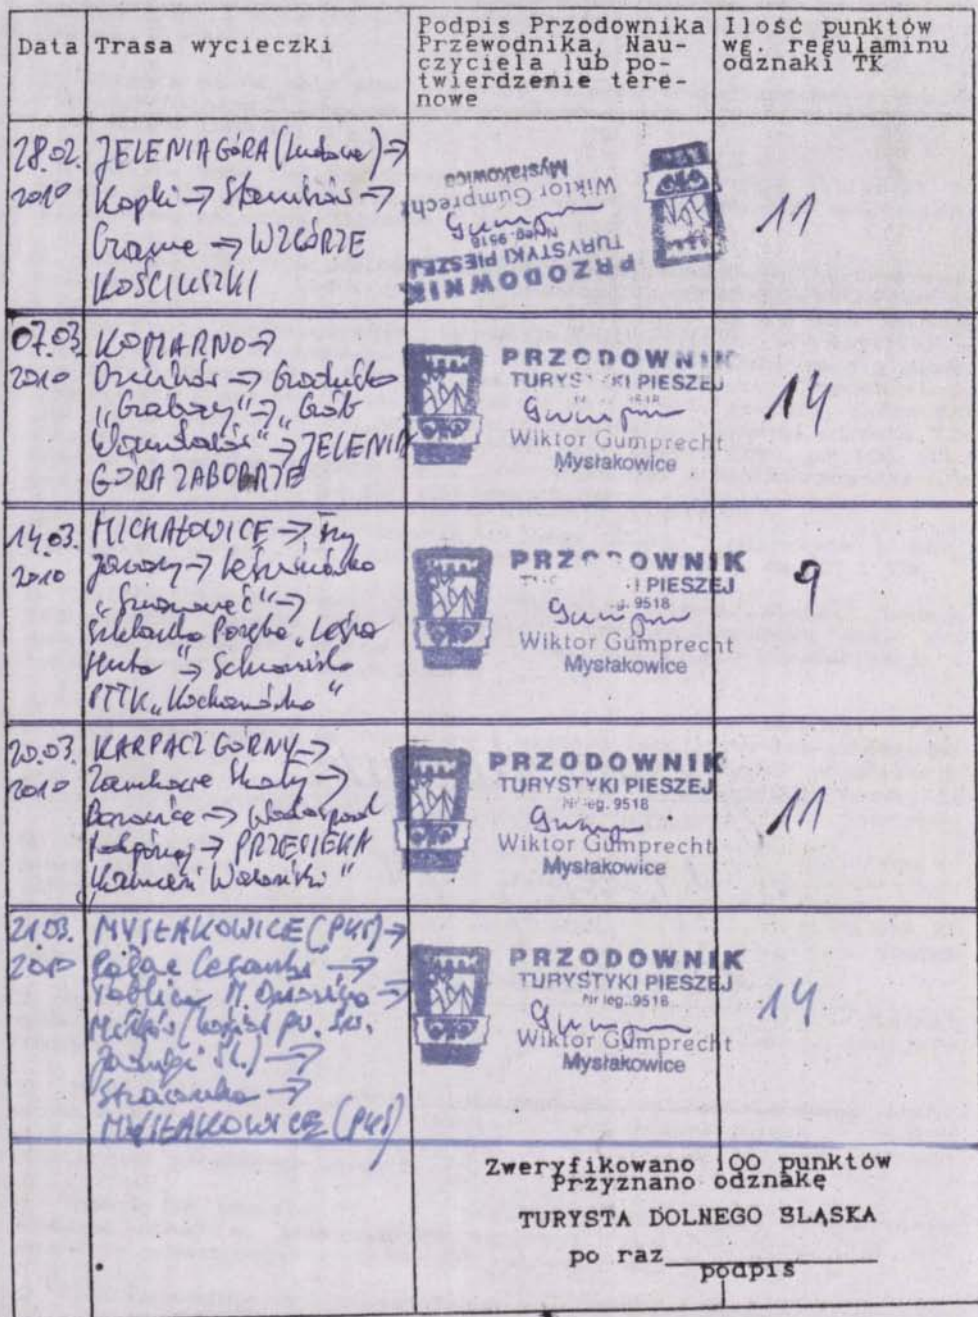 Data
Trasa wycieczki
Podpis Przodownika
Przewodnika, Nau-
czyciela lub po-
twierdzenie tere-
nowe
Ilość punktów
wg. regulaminu
odznaki TK
28.02.
2010
JELENIA GÓRA →
Kopki → Staniszów →
Czarne → WZGÓRZE
KOŚCIUSZKI
PRZODOWNIK
TURYSTYKI PIESZEJ
Nr leg. 9518
Wiktor Gumprecht
Mysłakowice
11
07.03.
2010
KOMARNO →
Dziwiszów → Grodzisko
→ "Grób
→ JELENIA
GÓRA ZABOBRZE
PRZODOWNIK
TURYSTYKI PIESZEJ
Wiktor Gumprecht
Mysłakowice
14
14.03.
2010
MICHAŁOWICE → Trzy
Jawory → Leśniczówka
→
Szklarska Poręba „Leśna
Huta" → Schronisko
PTTK „Kochanówka"
PRZODOWNIK
PIESZEJ
9518
Wiktor Gumprecht
Mysłakowice
9
20.03.
2010
KARPACZ GÓRNY →
Zamkowe Skały →
Borowice → Wodospad
Podgórnej → PRZESIEKA
„Kamień Waloński"
PRZODOWNIK
TURYSTYKI PIESZEJ
Nr leg. 9518
Wiktor Gumprecht
Mysłakowice
11
21.03.
2010
MYSŁAKOWICE (PKS) →
→
Tablica M. →
św.
Jadwigi Śl.) →
→
MYSŁAKOWICE (PKS)
PRZODOWNIK
TURYSTYKI PIESZEJ
Nr leg. 9518
Wiktor Gumprecht
Mysłakowice
14
Zweryfikowano 100 punktów
Przyznano odznakę
TURYSTA DOLNEGO SLĄSKA
po raz
podpis